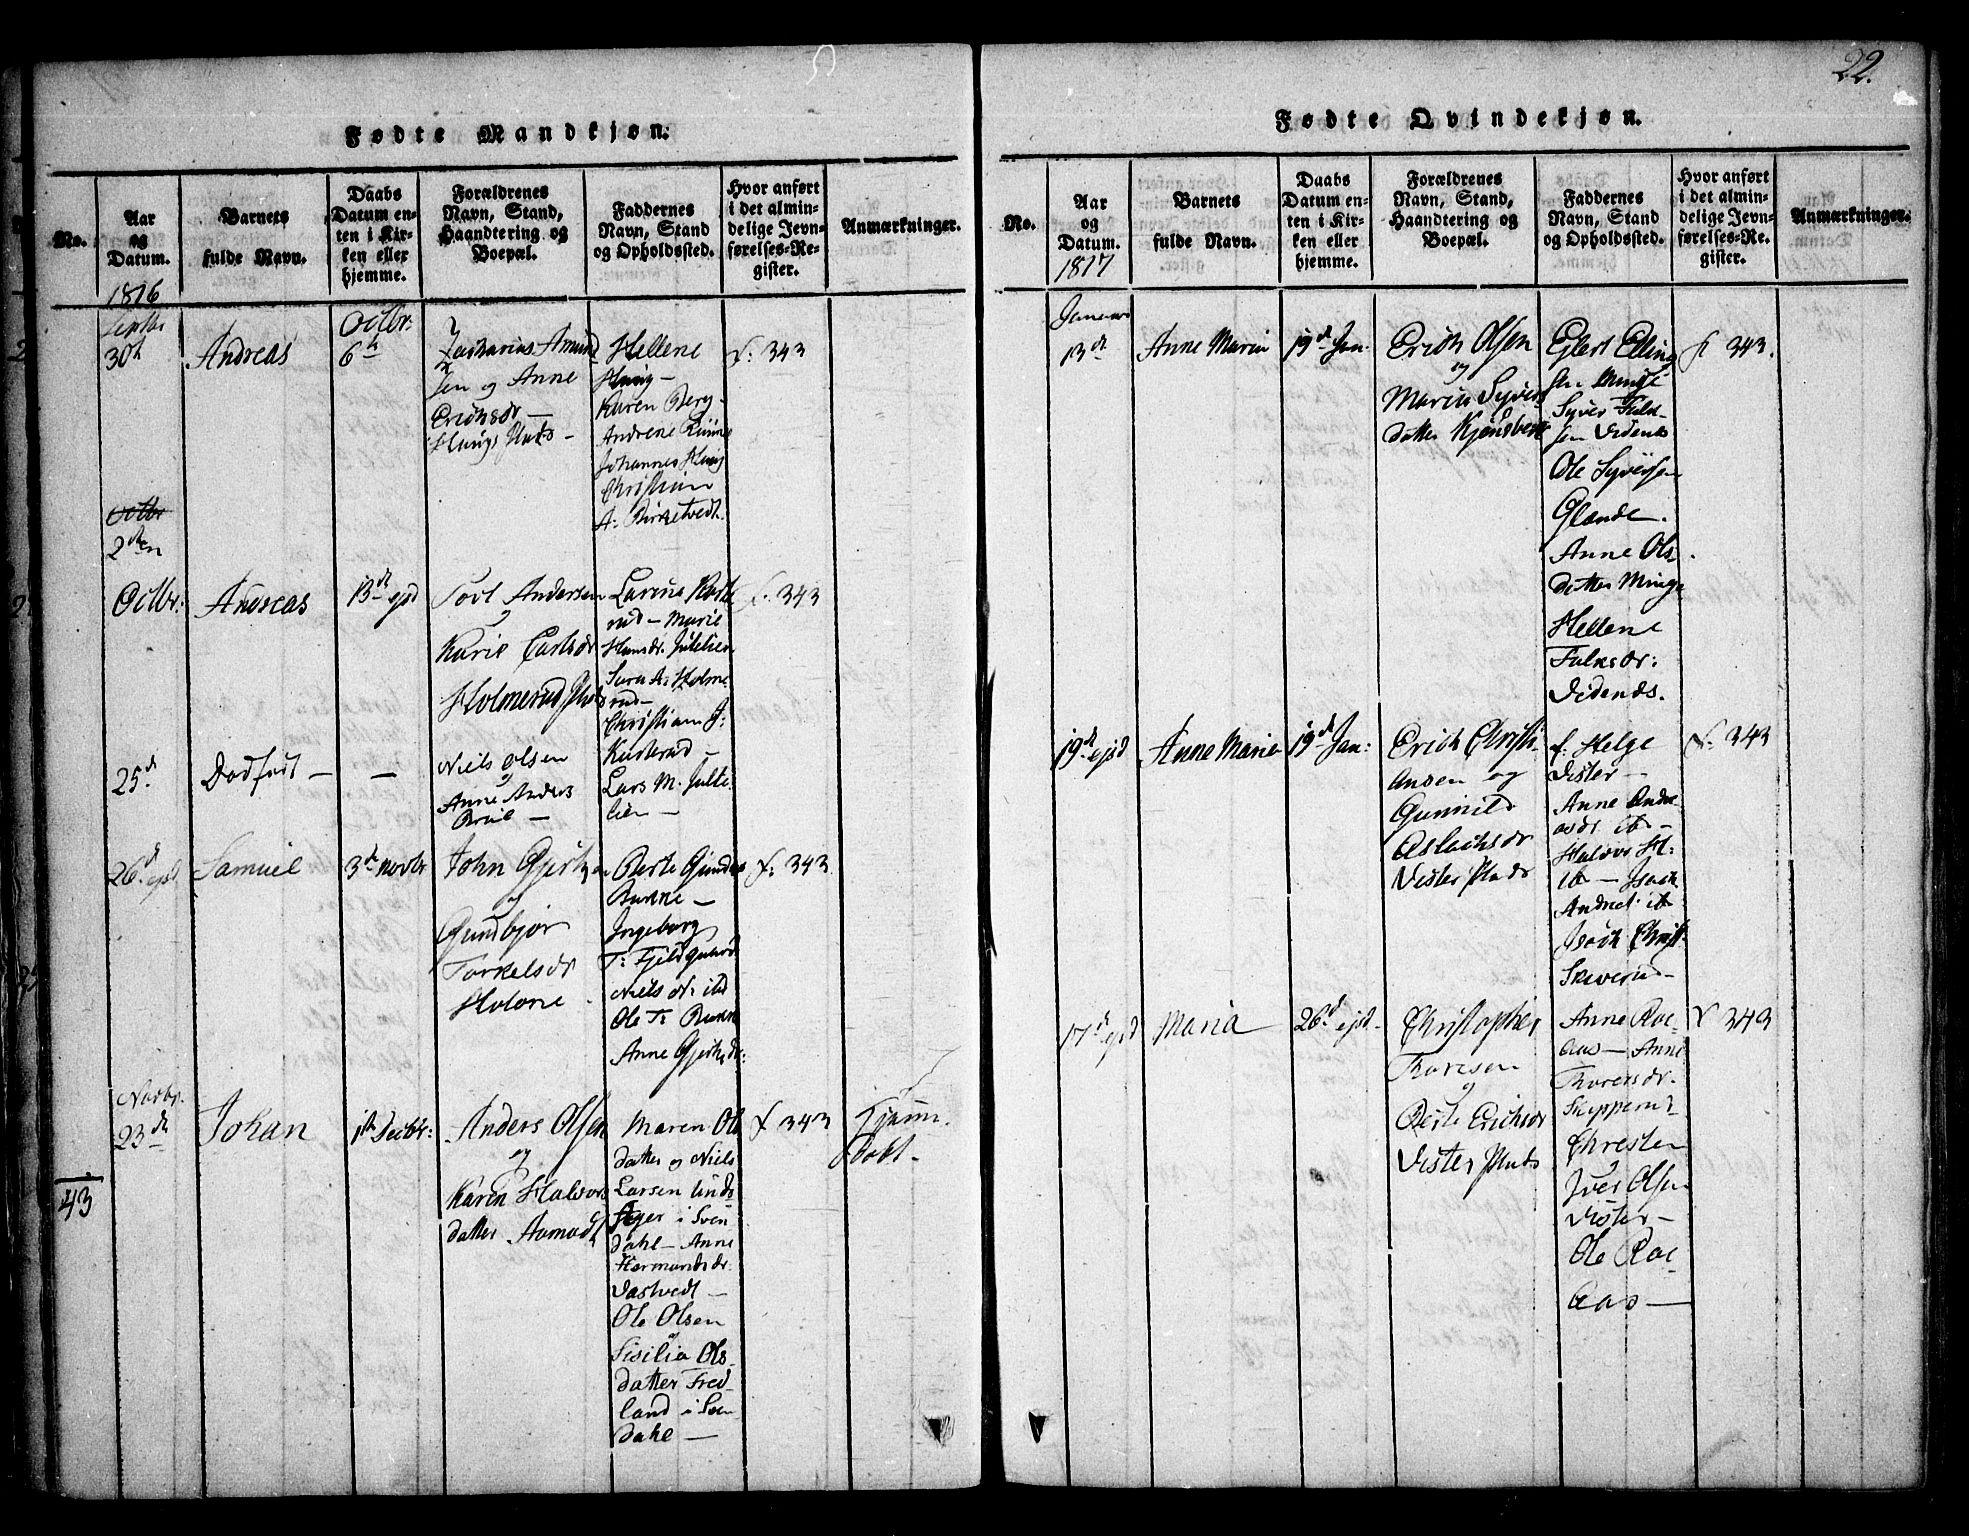 22.
Fødte Mandkjøn.
No.
Aar
og
Datum.
1816
Barnets
fulde Navn.
Daabs
Datum en-
ten i Kir-
ken eller
hjemme.
Forældrenes
Navn, Stand,
Haandtering og
Boepæl.
Faddernes
Navn, Stand
og Opholdssted.
Hvor anført
i det almin-
delige Jevn-
førelses-Re-
gister.
Anmærkninger.
30th
Andreas
Octbr:
6th
Zacharias Amund
sen og Anne
Erichsdr
Hungs Plads
Hellene
Hung
Karen Berg
Andrene
Johannes Hung
Christian
A: Birketvedt
N: 343
Octbr
2den
Octbr:
Andreas
13d ejsd
Andersen
og
Karie Carlsdr
Holmerud Plads
rud - Marie
Hansdr.
Sara A: Holme
rud -
Christian J:
Lars M. Julte
lien -
f. 343
25d
Dødfødt -
-
Niels Olsen
og
Anne Anders
26d ejsd
Samuel
3de Novbr
John Gjertsen
og
Gundbjør
Torkelsdr
Berte
Ingeborg
Niels N: ibd
Ole T:
Anne Gjertsdr:
f: 343
Novbr.
23de
Johan
1ste Decbr:
Anders Olsen
og
Karen Halvors
datter Aamodt
Maren Ols
datter og Niels
Larsen Unds
i Sven
dahl - Anne
Hermandsdr.
Vastvedt -
Ole Olsen
og
Sisilia Ols
datter Fred
land i Sven
dahl -
f 343
Hjem.
døbt.
43
Fødte Qvindekjøn.
No.
Aar
og
Datum.
1817
Barnets
fulde Navn.
Daabs
Datum en-
ten i Kir-
ken eller
hjemme.
Forældrenes
Navn, Stand,
Haandtering og
Boepæl.
Faddernes
Navn, Stand
og Opholdssted.
Hvor anført
i det almin-
delige Jevn-
førelses-Re-
gister.
Anmærkninger.
Januar
13de
Anne Maria
19d Jan.
Erich Olsen
og
Maria Syvers
datter Kjønsberg
Eylert Elling
sen Minge
Syver Falk
sen Vedends
Ole Syversen
Glende.
Anne Ols-
datter Minge
Hellene
Falksdr:
Vedends.
f 343.
19d ejsd
Anne Marie
19d Jan:
Erich Christi
ansen og
Gunnild
Aslachsdr
Vister Plads
f: Helge
Vister -
Anne Andre
asdr ib -
Halvor H:
ib - Isach
Andrea: ib
Isach Christ
Skiverud -
N: 343
17d ejsd
Maria
26d ejsd
Christopher
Thoresen
og
Berte Erichsdr
Vister Plads
Anne Roe-
aas - Anne
Thoresdr.
Skipperud
Christen
og
Iver Olsen
Vister -
Ole Roe-
aas -
N 343